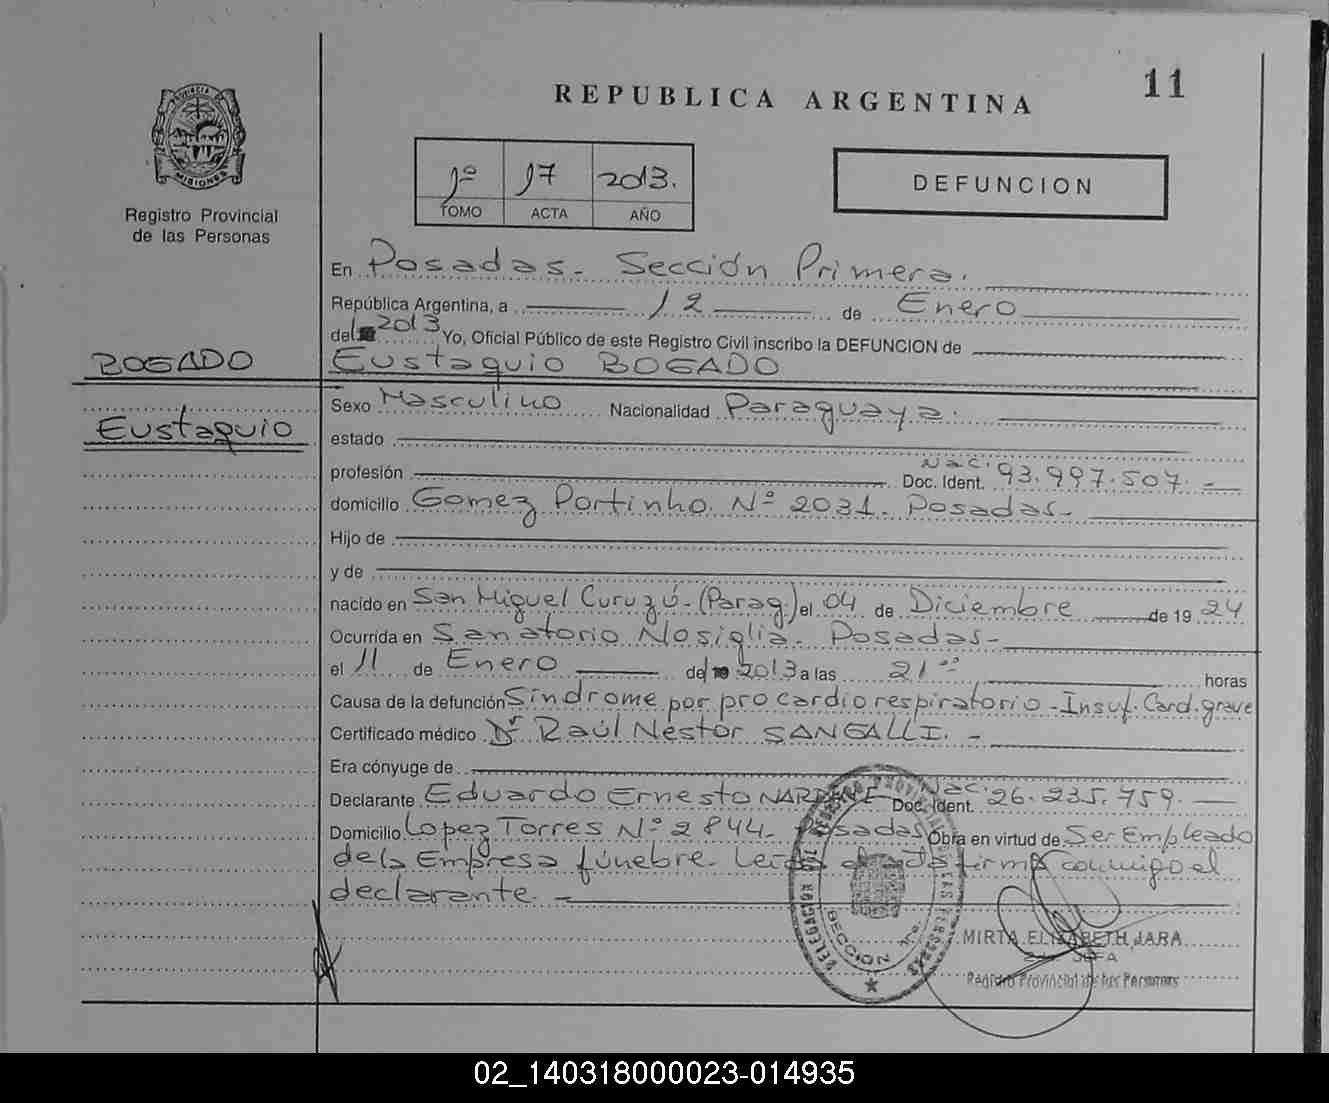 11
REPUBLICA ARGENTINA
PROVINCIA DE
MISIONES
Registro Provincial
de las Personas
1º 17 2013.
TOMO ACTA AÑO
DEFUNCION
En Posadas - Sección Primera.
República Argentina, a 12 de Enero
del 2013 Yo, Oficial Público de este Registro Civil inscribo la DEFUNCION de
BOGADO
Eustaquio BOGADO
Eustaquio
Sexo Masculino Nacionalidad Paraguaya.
estado
profesión Doc. Ident. Nac. 93.997.507.-
domicilio Gomez Portinho Nº 2031. Posadas-
Hijo de
y de
nacido en San Miguel Curuzú-(Parag.) el 04 de Diciembre de 19 24
Ocurrida en Sanatorio Nosiglia. Posadas-
el 11 de Enero del 2013 a las 21 °° horas
Causa de la defunción Síndrome por pro cardiorespiratorio - Insuf. Card. grave
Certificado médico Dr Raúl Nestor SANGALLI.-
Era cónyuge de
Declarante Eduardo Ernesto Doc. Ident. Nac. 26.235.759.-
Domicilio Lopez Torres Nº 2844- Posadas Obra en virtud de Ser Empleado
de la Empresa fúnebre. Leida el acta firma conmigo el
declarante.-
DELEGACION DEL REGISTRO PROVINCIAL DE LAS PERSONAS
SECCION 1ra.
MIRTA ELIZABETH JARA
JEFA
Registro Provincial de las Personas
02_140318000023-014935